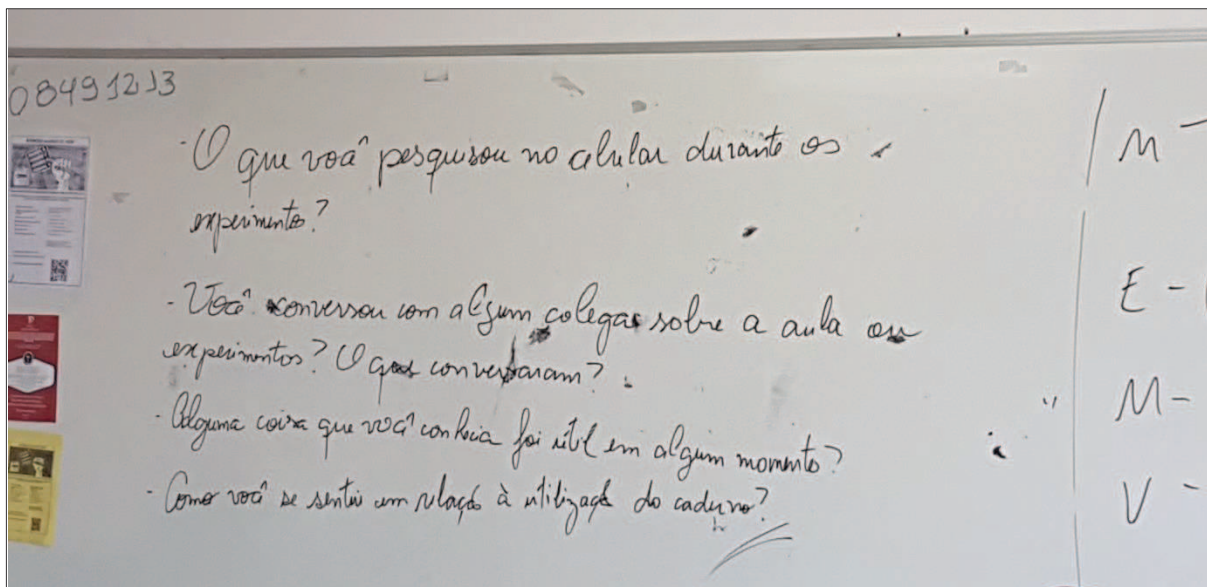 08491213
- O que você pesquisou no celular durante os
experimento?
- Você conversou com algum colegas sobre a aula ou
experimentos? O que conversaram?
- Alguma coisa que você conhecia foi útil em algum momento?
- Como você se sentiu em relação à utilização do caderno?
M -
E -
M -
V -